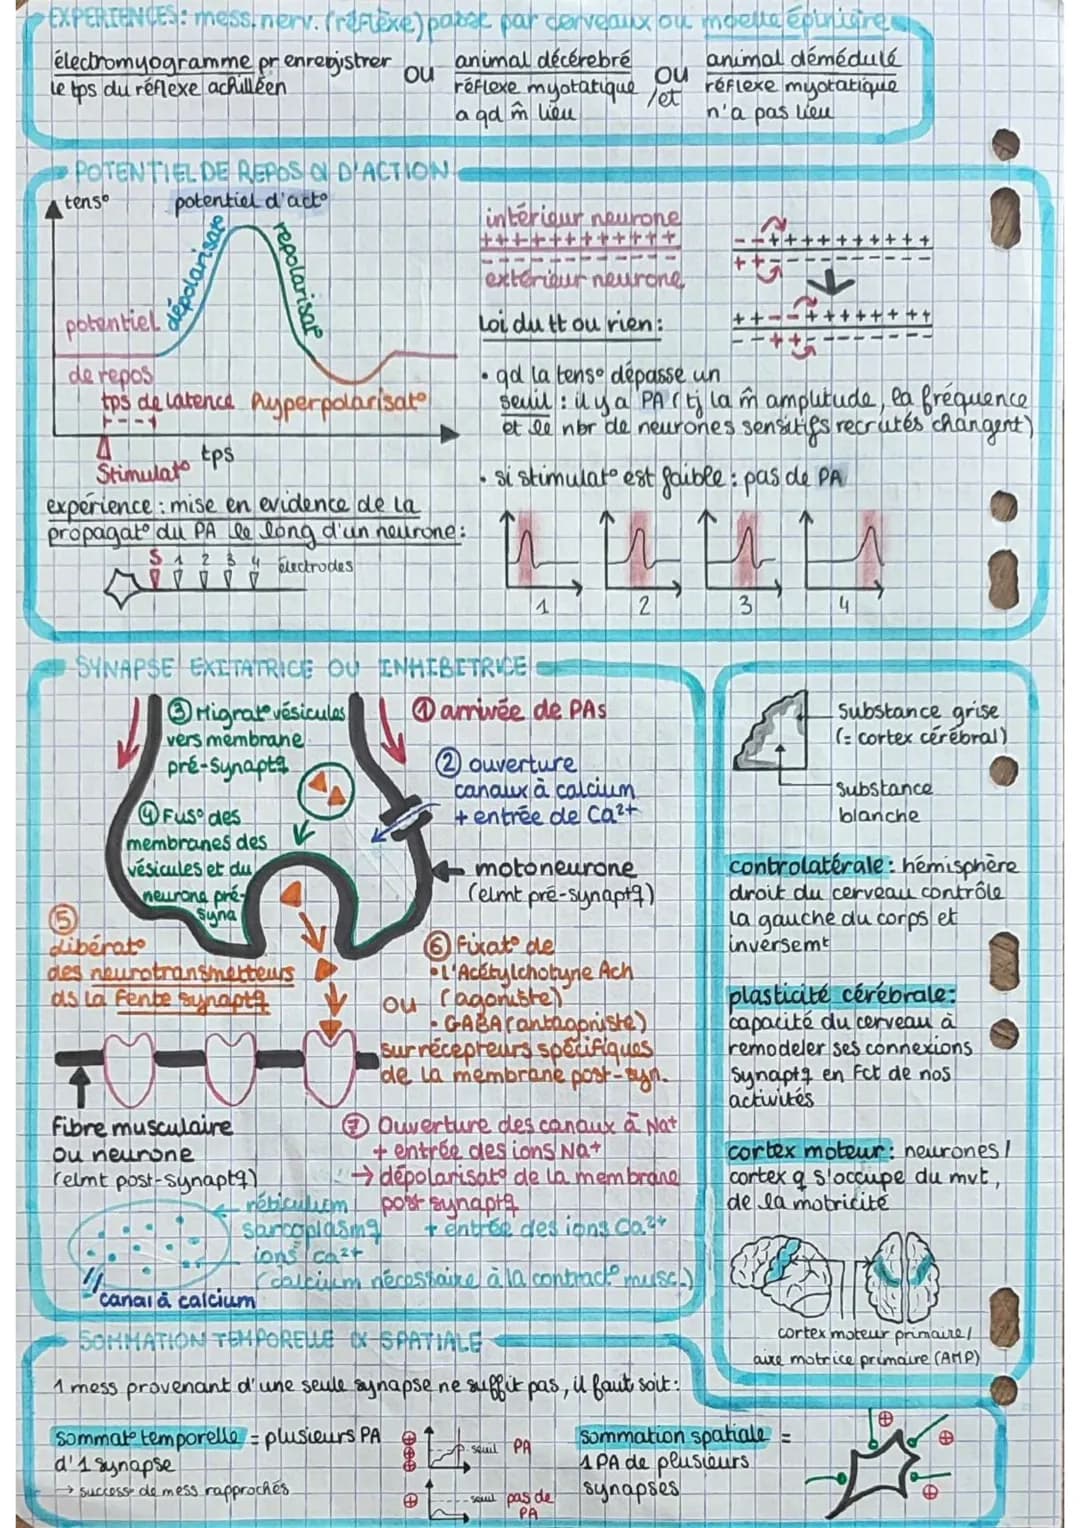 EXPERIENCES: mess. nerv. (réflèxe) passe par cerveaux ou moelle épinière
électromyogramme pr enregistrer
le tps du réflexe achilléen
ou
animal décérebré
réflexe myotatique
a qd m̂ lieu
ou
/et
animal démédulé
réflexe myotatique
n'a pas lieu
POTENTIEL DE REPOS & D'ACTION
tens°
potentiel d'act°
dépolarisat°
repolarisat°
potentiel
de repos
tps de latence
hyperpolarisat°
Stimulat°
tps
intérieur neurone
+++++++++++++
- - - - - - - - - - - -
extérieur neurone
--++++++++++
++----------
++--++++++++
--++--------
Loi du tt ou rien:
• qd la tens° dépasse un
seuil : il y a PA (tj la m̂ amplitude, la fréquence
et le nbr de neurones sensitifs recrutés changent)
• si stimulat° est faible : pas de PA
expérience : mise en evidence de la
propagat° du PA le long d'un neurone :
S 1 2 3 4 électrodes
1 2 3 4
SYNAPSE EXITATRICE OU INHIBITRICE
① arrivée de PAs
② ouverture
canaux à calcium
+ entrée de Ca2+
③ Migrat° vésicules
vers membrane
pré-synaptq
④ Fus° des
membranes des
vésicules et du
neurone pré-
syna
motoneurone
(elmt pré-synaptq)
⑤
libérat°
des neurotransmetteurs
ds la fente synaptq
⑥ Fixat° de
• L'Acétylcholyne Ach
(agoniste)
ou
• GABA (antagoniste)
sur récepteurs spécifiques
de la membrane post-syn.
Fibre musculaire
ou neurone
(elmt post-synaptq)
⑦ Ouverture des canaux à Na+
+ entrée des ions Na+
→ dépolarisat° de la membrane
post synaptq
+ entrée des ions Ca2+
réticulum
sarcoplasmq
ions ca2+
(calcium nécessaire à la contract° musc.)
canal à calcium
Substance grise
(= cortex cérébral)
Substance
blanche
controlatérale : hémisphère
droit du cerveau contrôle
la gauche du corps et
inversemt
plasticité cérébrale :
capacité du cerveau à
remodeler ses connexions
synaptq en fct de nos
activités
cortex moteur : neurones /
cortex q s'occupe du mvt,
de la motricité
cortex moteur primaire/
aire motrice primaire (AMP)
SOMMATION TEMPORELLE & SPATIALE
1 mess provenant d'une seule synapse ne suffit pas, il faut soit :
sommat° temporelle = plusieurs PA
d'1 synapse
→ success° de mess rapprochés
⊕⊕⊕
seuil PA
⊕
seuil pas de
PA
sommation spatiale =
1 PA de plusieurs
synapses
⊕
⊕
⊕